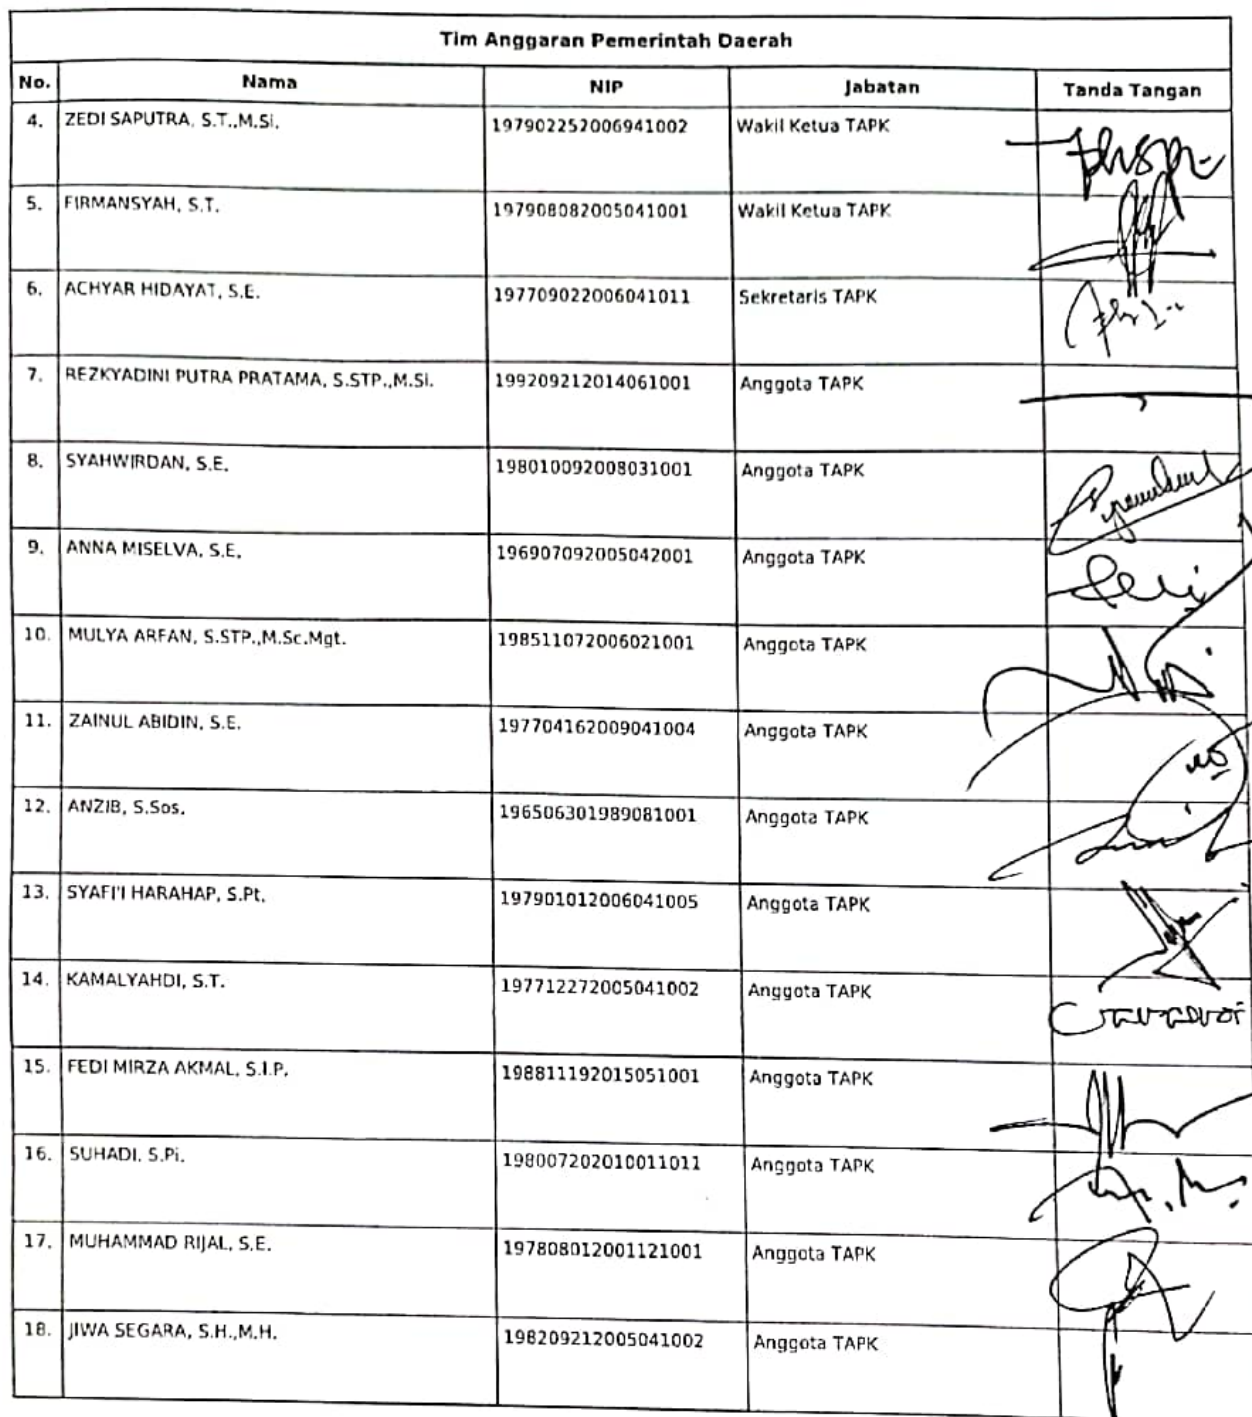 Tim Anggaran Pemerintah Daerah
No. Nama NIP Jabatan Tanda Tangan
4. ZEDI SAPUTRA, S.T.,M.Si. 197902252006941002 Wakil Ketua TAPK
5. FIRMANSYAH, S.T. 197908082005041001 Wakil Ketua TAPK
6. ACHYAR HIDAYAT, S.E. 197709022006041011 Sekretaris TAPK
7. REZKYADINI PUTRA PRATAMA, S.STP.,M.Si. 199209212014061001 Anggota TAPK
8. SYAHWIRDAN, S.E. 198010092008031001 Anggota TAPK
9. ANNA MISELVA, S.E. 196907092005042001 Anggota TAPK
10. MULYA ARFAN, S.STP.,M.Sc.Mgt. 198511072006021001 Anggota TAPK
11. ZAINUL ABIDIN, S.E. 197704162009041004 Anggota TAPK
12. ANZIB, S.Sos. 196506301989081001 Anggota TAPK
13. SYAFI'I HARAHAP, S.Pt. 197901012006041005 Anggota TAPK
14. KAMALYAHDI, S.T. 197712272005041002 Anggota TAPK
15. FEDI MIRZA AKMAL, S.I.P. 198811192015051001 Anggota TAPK
16. SUHADI, S.Pi. 198007202010011011 Anggota TAPK
17. MUHAMMAD RIJAL, S.E. 197808012001121001 Anggota TAPK
18. JIWA SEGARA, S.H.,M.H. 198209212005041002 Anggota TAPK